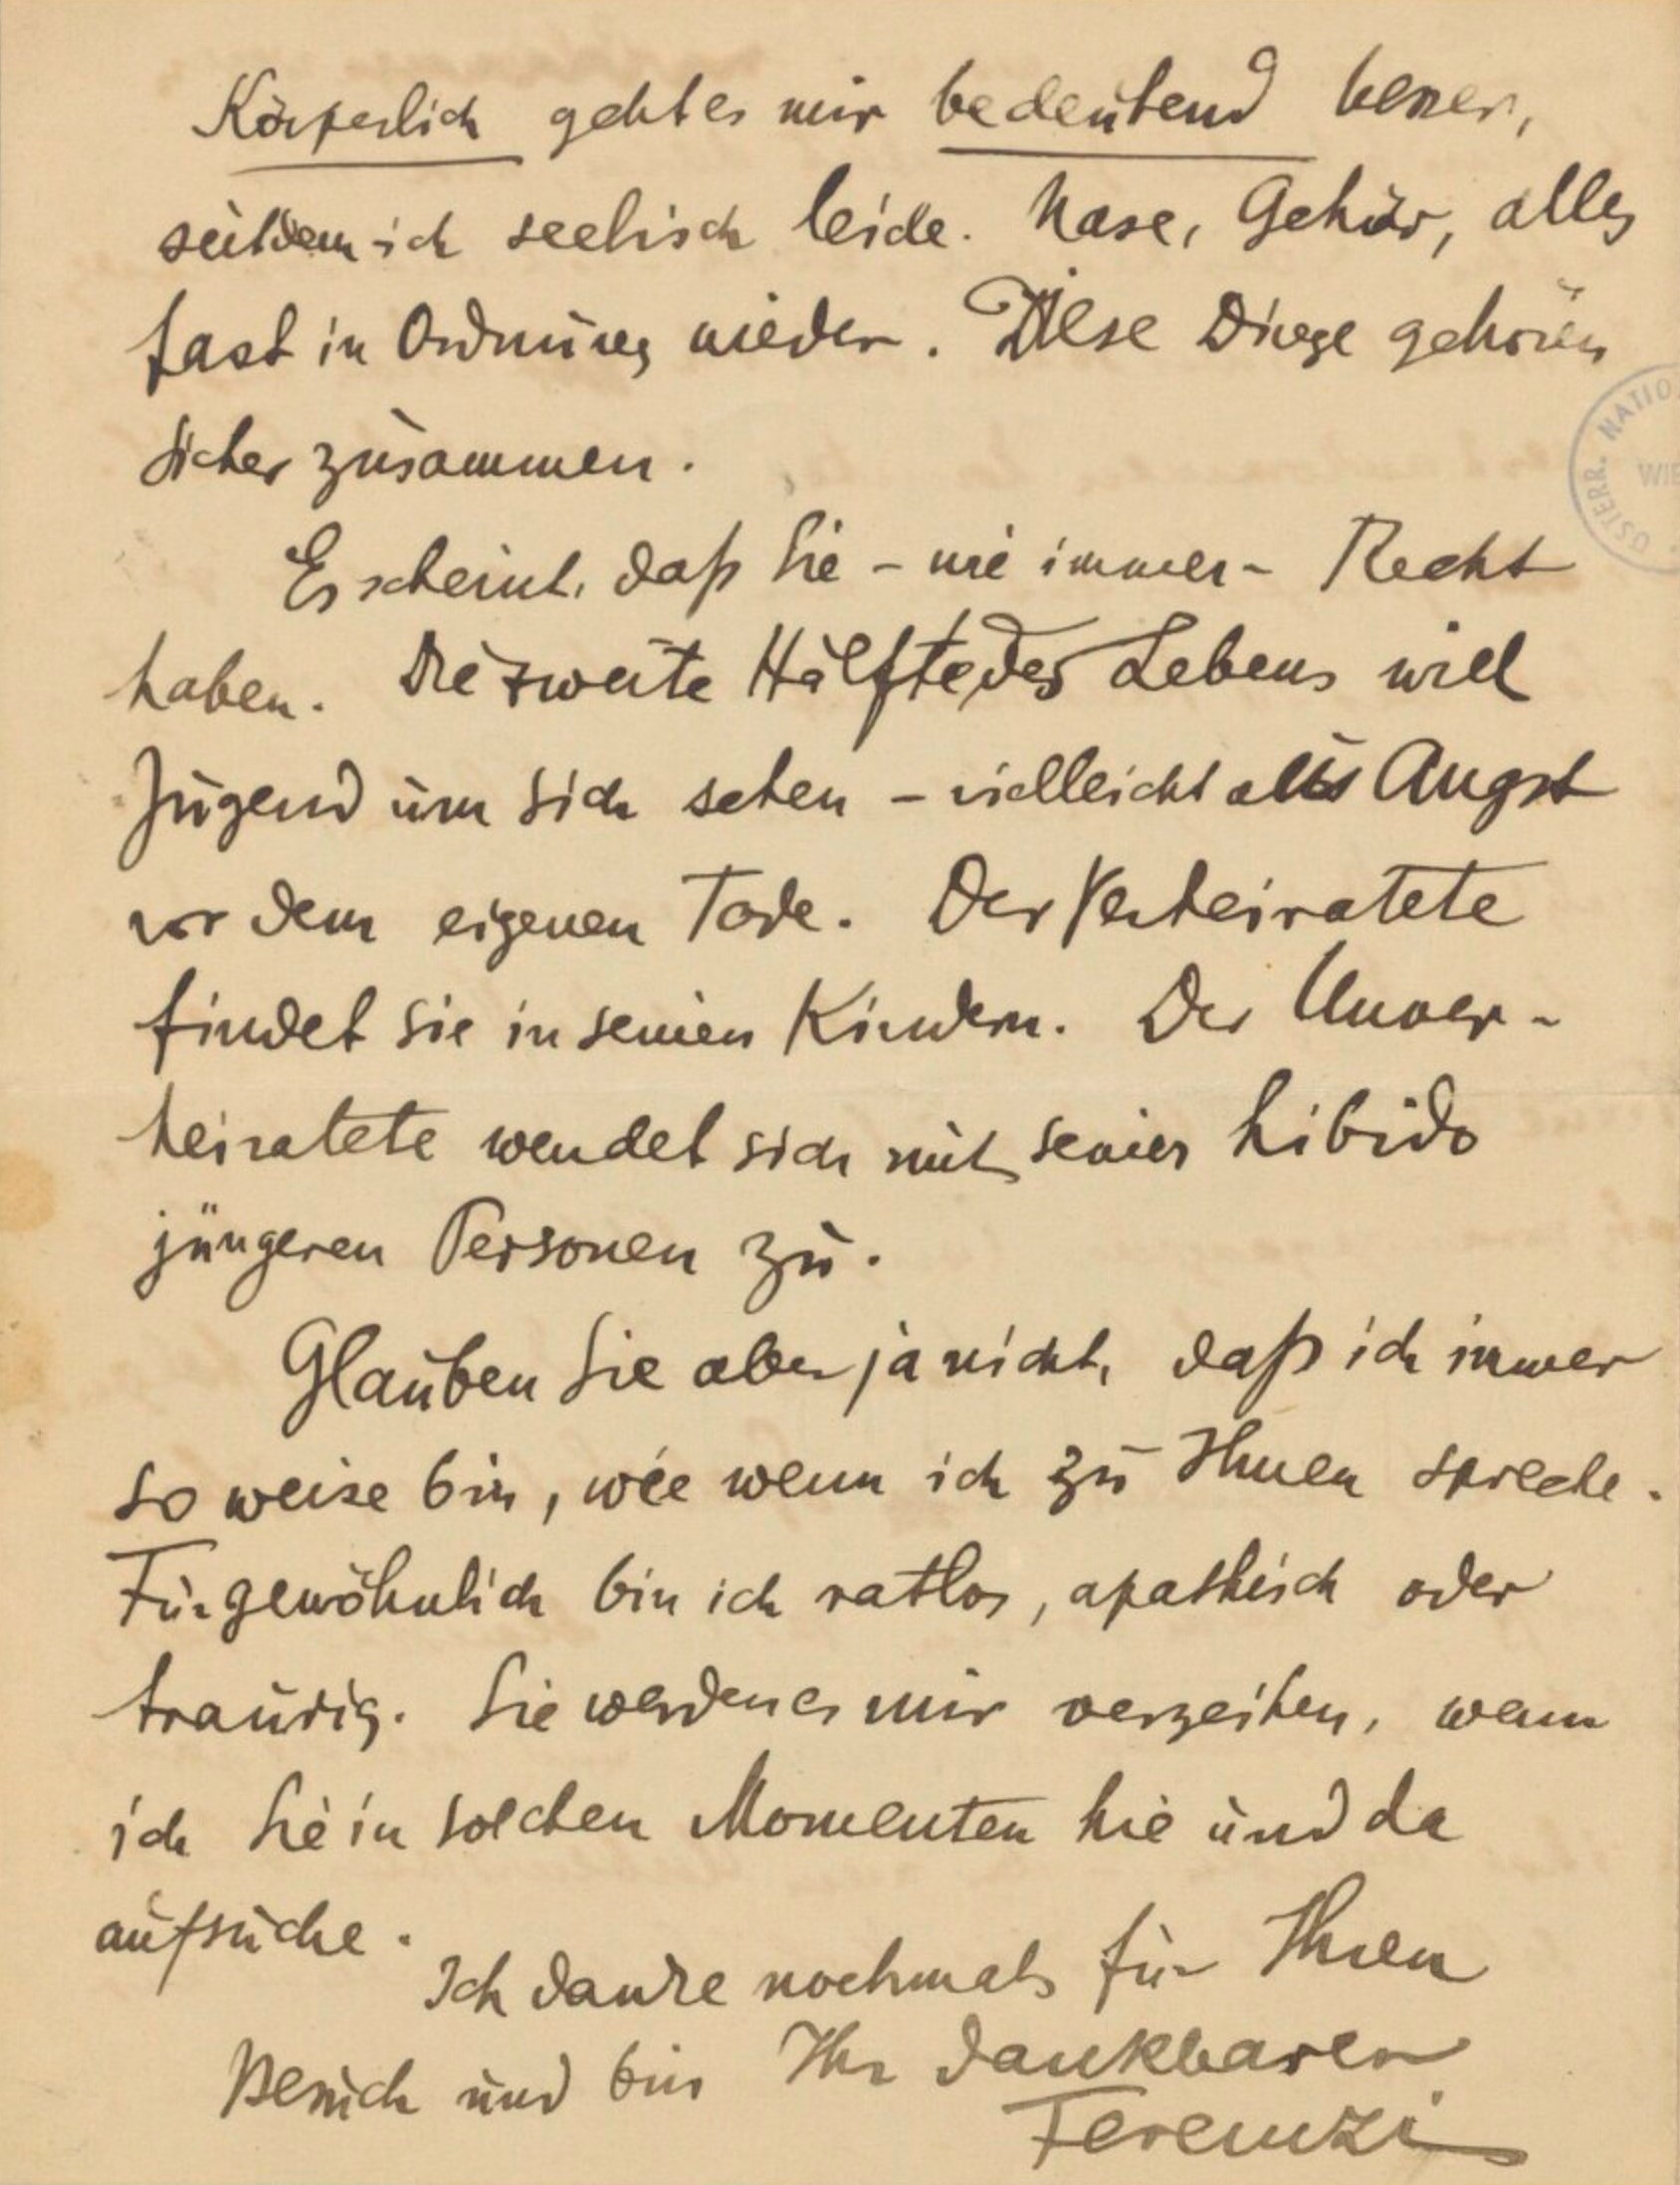 Körperlich geht es mir bedeutend besser,
seitdem ich seelisch leide. Nase, Gehör, alles
fast in Ordnung wieder. Diese Dinge gehören
sicher zusammen.
Es scheint, daß Sie – wie immer – Recht
haben. Die zweite Hälfte des Lebens will
Jugend um sich sehen – vielleicht aus Angst
vor dem eigenen Tode. Der Verheiratete
findet sie in seinen Kindern. Der Unver-
heiratete wendet sich mit seiner Libido
jüngeren Personen zu.
Glauben Sie aber ja nicht, daß ich immer
so weise bin, wie wenn ich zu Ihnen spreche.
Für gewöhnlich bin ich ratlos, apathisch oder
traurig. Sie werden es mir verzeihen, wenn
ich Sie in solchen Momenten hie und da
aufsuche.
Ich danke nochmals für Ihren
Besuch und bin Ihr dankbarer
Ferenczi
ÖSTERR. NATIO
WIE